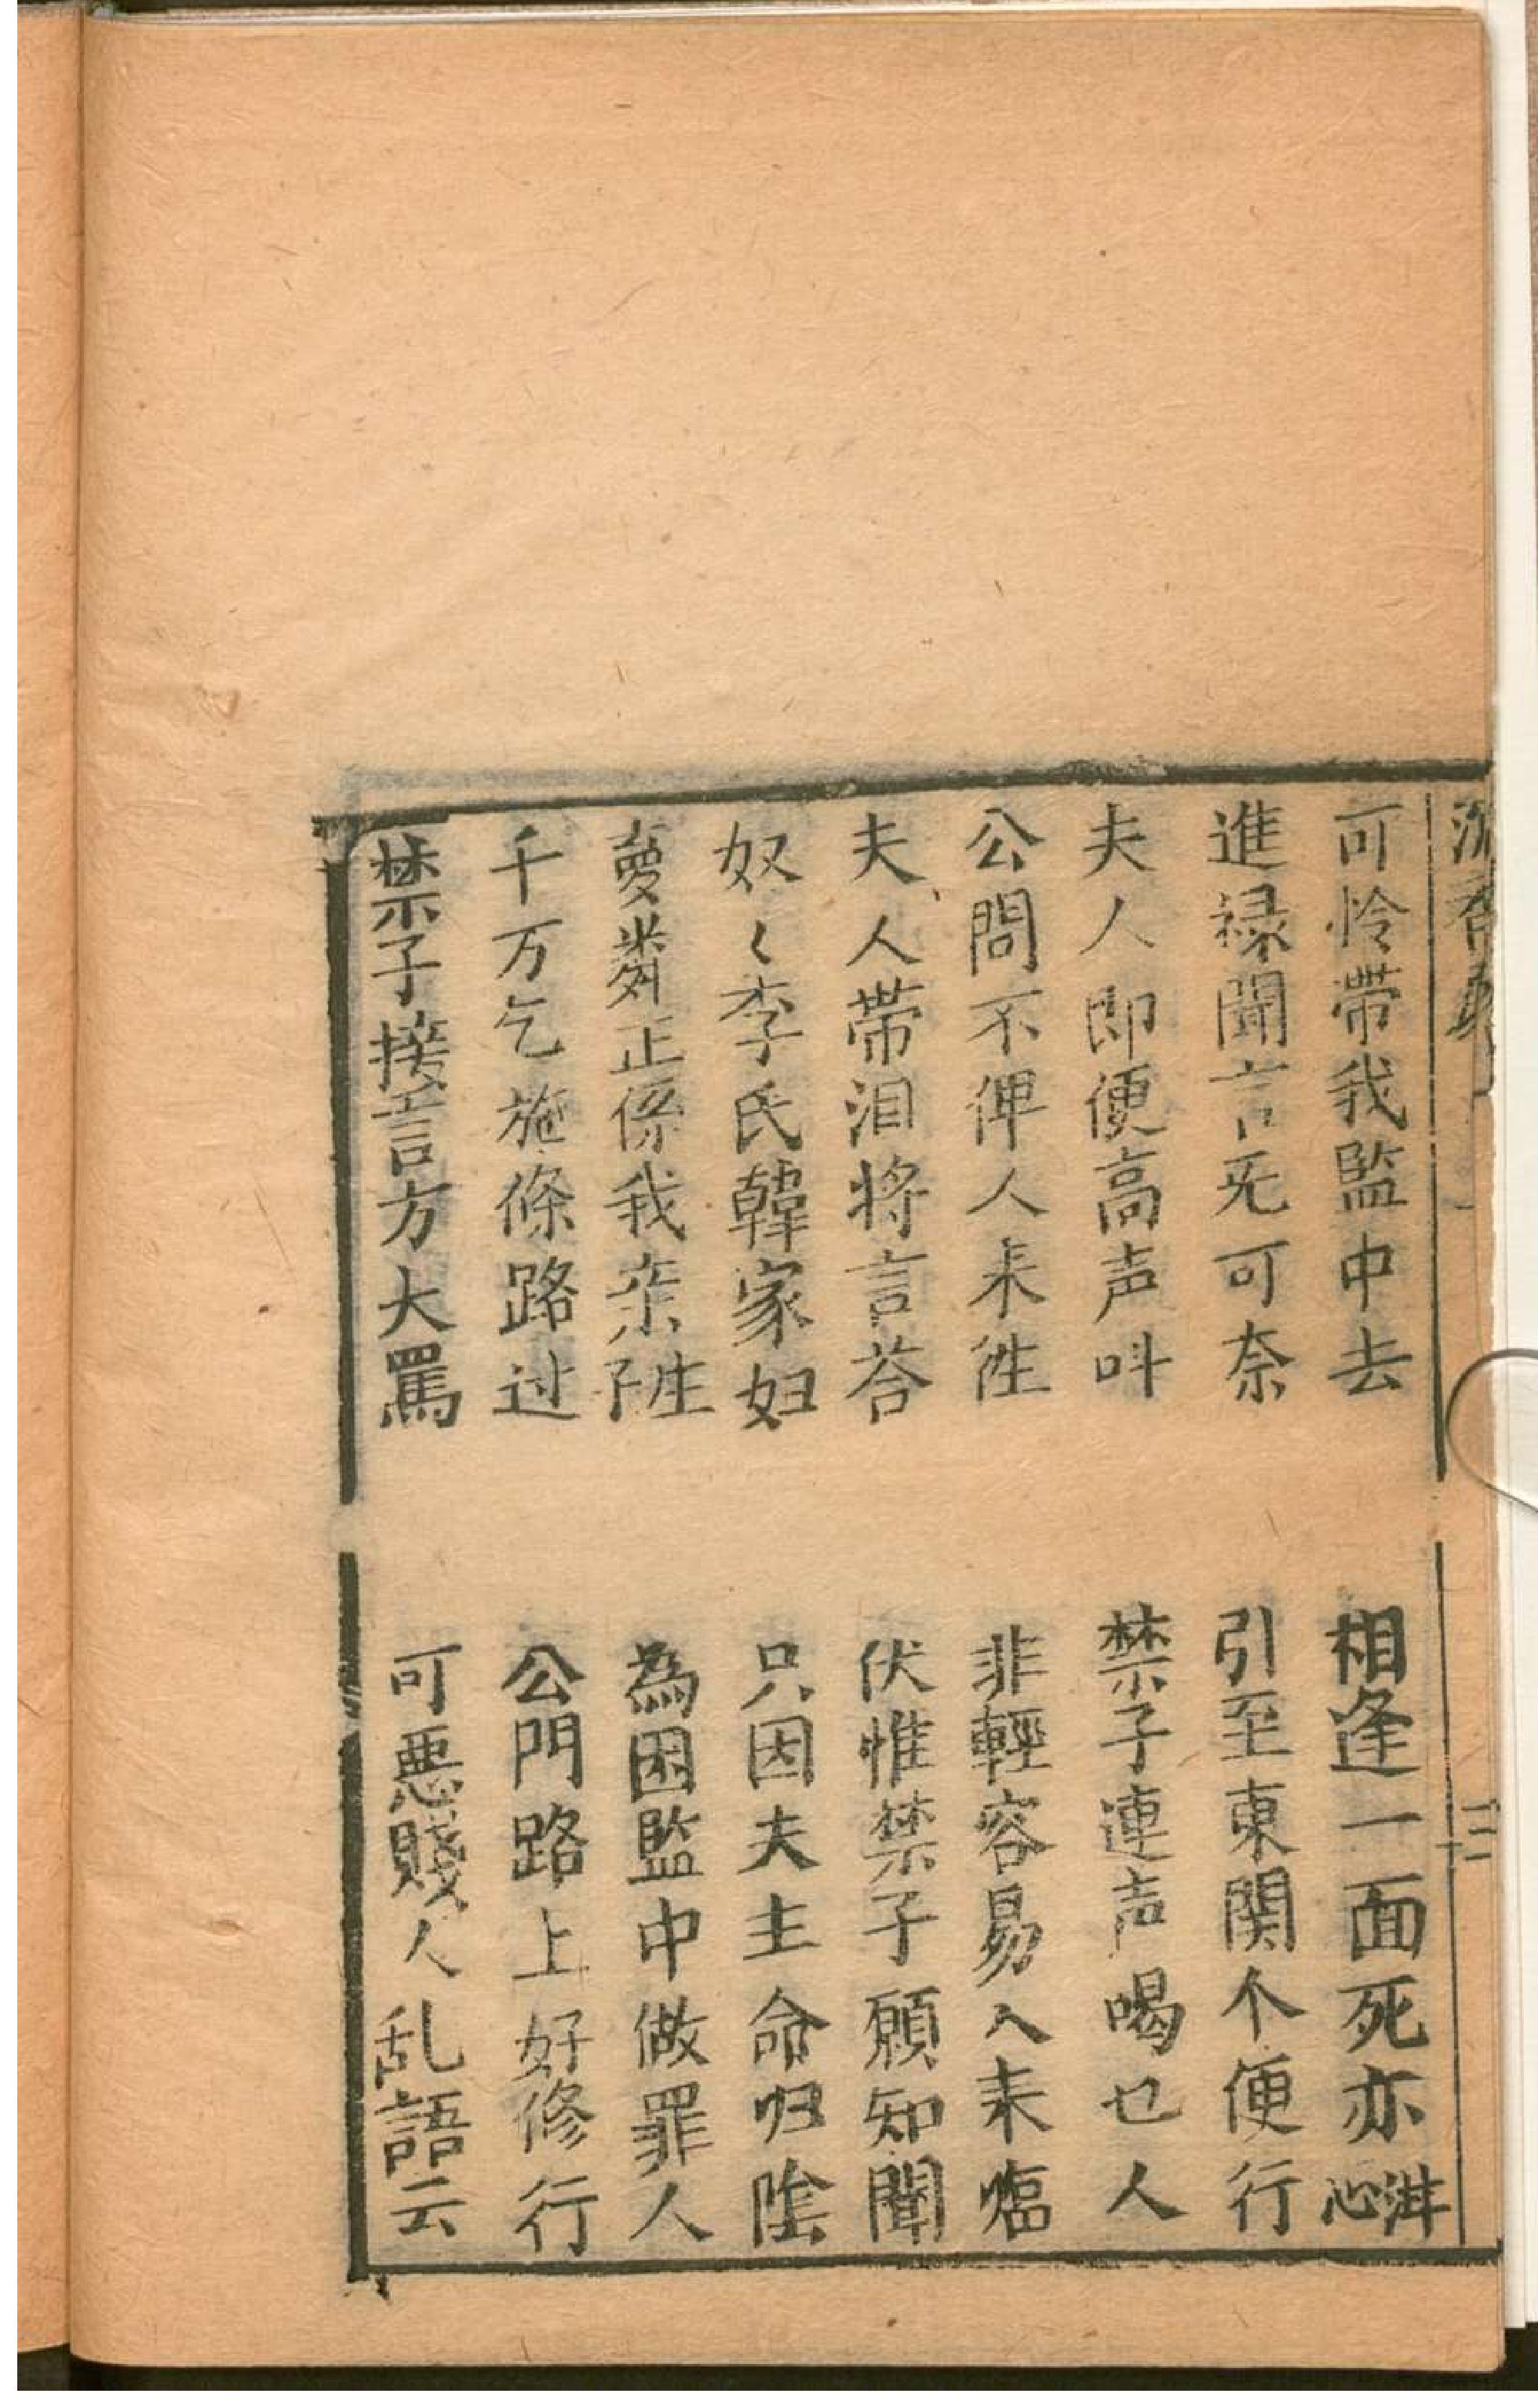 可怜帶我監中去
相逢一面死亦心
進禄聞言旡可奈
引至東関个便行
夫人即便高声呌
禁子連声喝乜人
公問不俾人耒徃
非輕容易入耒臨
夫人帶泪将言荅
伏惟禁子願知聞
奴〻李氏韓家妇
只因夫主命归陰
夢粦正係我亲
為困監中做罪人
千万乞施條路过
公門路上好修行
禁子接言方大罵
可惡賤人乱語云